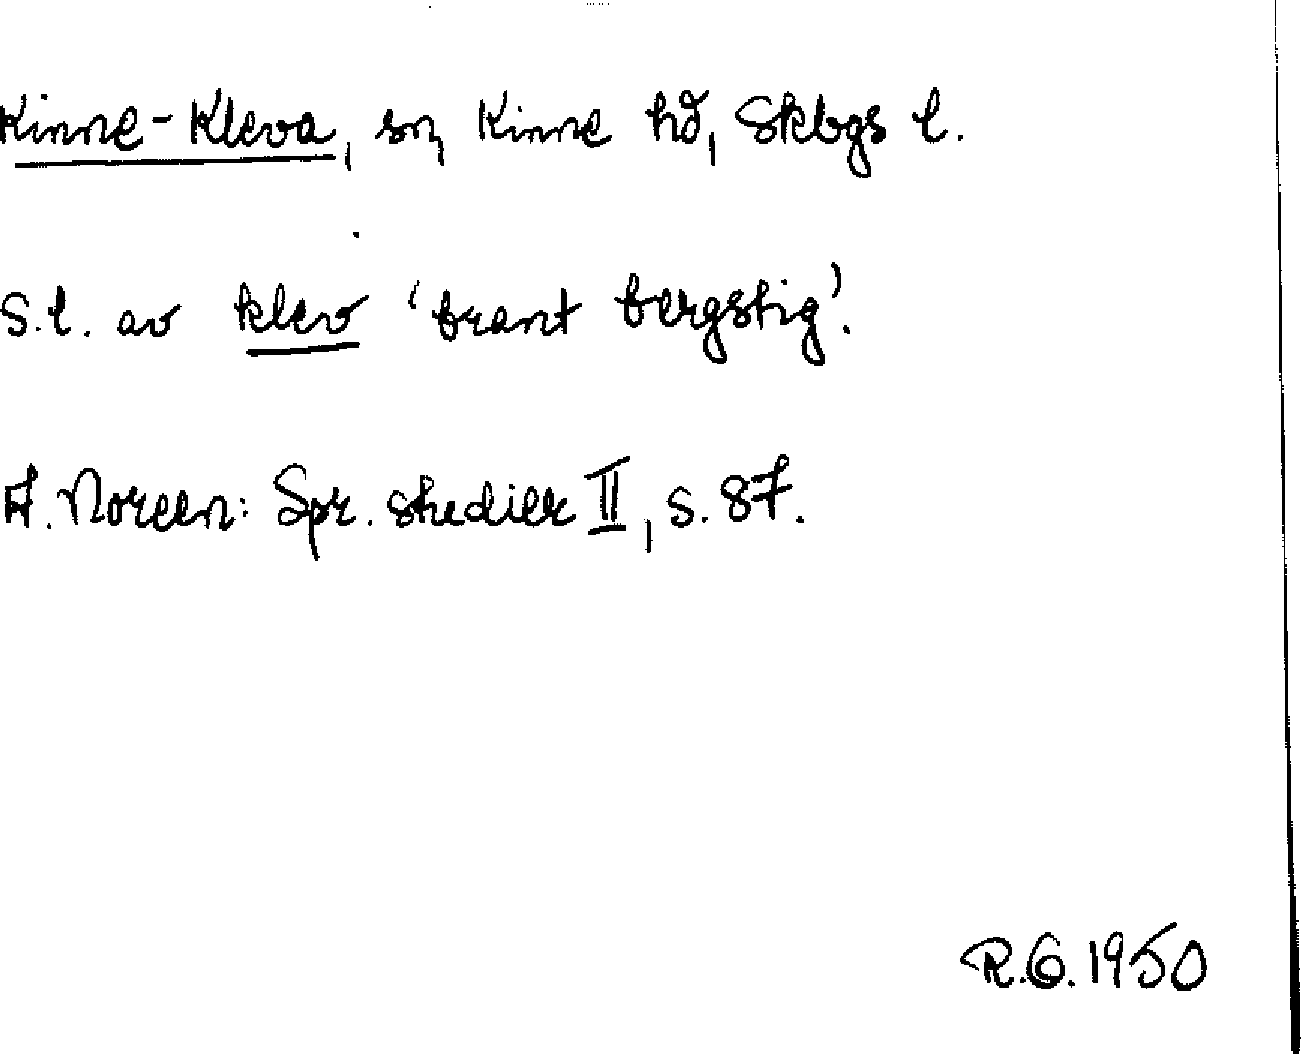 Kinne-Kleva, sn, Kinne hd, Skbgs l.
S.l. av klev 'brant bergstig'.
A. Noreen: Spr. studier II, s. 87.
R.G. 1950